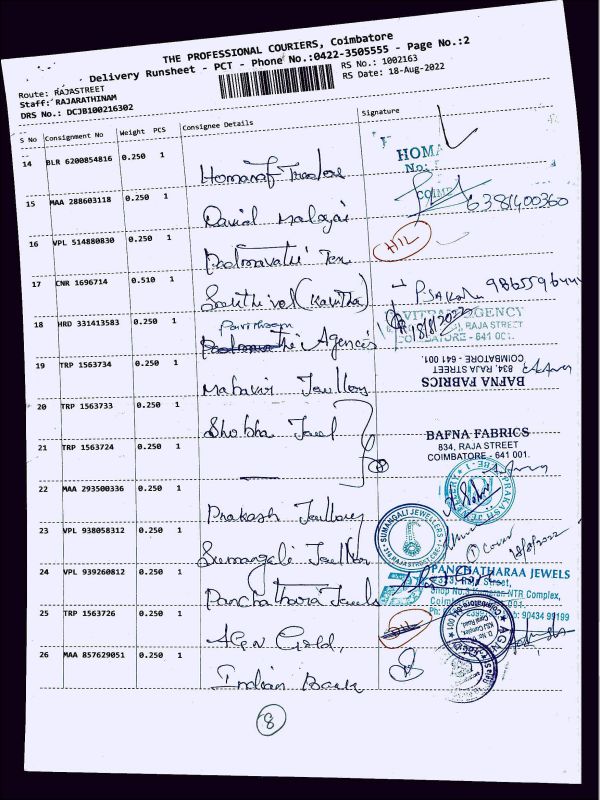 THE PROFESSIONAL COURIERS, Coimbatore
Delivery Runsheet - PCT - Phone No.:0422-3505555 - Page No.:2
Route: RAJASTREET
Staff: RAJARATHINAM
DRS No.: DCJB100216302
RS No.: 1002163
RS Date: 18-Aug-2022
S No Consignment No Weight PCS Consignee Details Signature
14 BLR 6200854816 0.250 1
HOMA
No:
15 MAA 288603118 0.250 1 David
COIM 6381400360
16 VPL 514880830 0.250 1 Padmavathi Tex
17 CNR 1696714 0.510 1 (Kavitha)
18 HRD 331413583 0.250 1 Agencis
AGENCY
18/8/2022 RAJA STREET
COIMBATORE - 641 001.
19 TRP 1563734 0.250 1 Mahavir Jewllers
BAFNA FABRICS
834, RAJA STREET
COIMBATORE - 641 001.
20 TRP 1563733 0.250 1 Shobha Jewel
BAFNA FABRICS
834, RAJA STREET
COIMBATORE - 641 001.
21 TRP 1563724 0.250 1
22 MAA 293500336 0.250 1 Prakash Jewllery
PRAKASH JEWELLERY
23 VPL 938058312 0.250 1 Sumangali Jewller
SUMANGALI JEWELLERS
① Cover 18/8/2022
24 VPL 939260812 0.250 1 Panchathara Jewels
PANCHATHARAA JEWELS
Street,
NTR Complex,
90434 99199
25 TRP 1563726 0.250 1 AGN Gold,
AGN
Coimbatore-641 001
26 MAA 857629051 0.250 1 Indian Bank
8